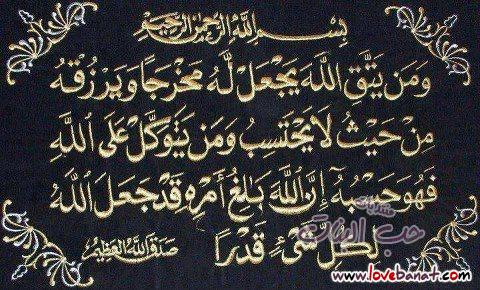 بِسْمِ اللَّهِ الرَّحْمَٰنِ الرَّحِيمِ
وَمَن يَتَّقِ اللَّهَ يَجْعَل لَّهُ مَخْرَجًا وَيَرْزُقْهُ
مِنْ حَيْثُ لَا يَحْتَسِبُ وَمَن يَتَوَكَّلْ عَلَى اللَّهِ
فَهُوَ حَسْبُهُ إِنَّ اللَّهَ بَالِغُ أَمْرِهِ قَدْ جَعَلَ اللَّهُ
لِكُلِّ شَيْءٍ قَدْرًا صَدَقَ اللَّهُ الْعَظِيمُ
منتديات
حب البنات
www.lovebanat.com